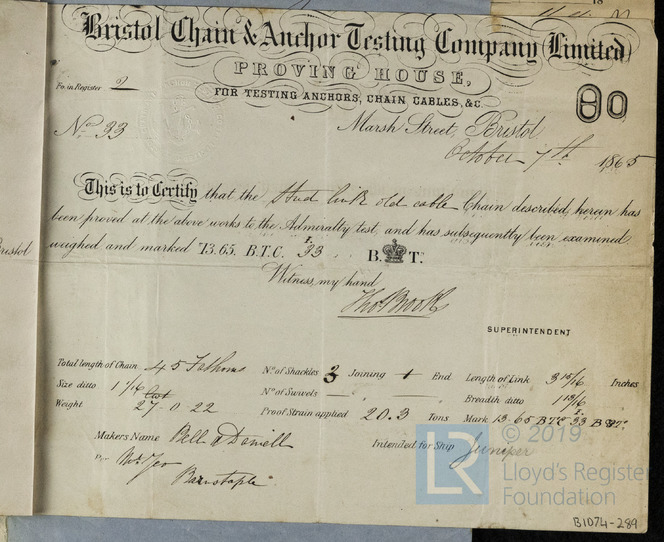 18
Bristol Chain & Anchor Testing Company (Limited)
PROVING HOUSE,
FOR TESTING ANCHORS, CHAIN CABLES, &C.
Fo. in Register 2
No. 33
Marsh Street, Bristol
October 7th 1865
This is to Certify that the Stud link old cable Chain described herein has
been proved at the above works to the Admiralty test, and has subsequently been examined
weighed and marked 13.65. B.T.C. 33 B. T.
Witness my hand
Thos Brook
SUPERINTENDENT
Total length of Chain 45 Fathoms No. of Shackles 3 Joining 1 End Length of Link 3 15/16 Inches
Size ditto 1 1/16 No. of Swivels — " — " Breadth ditto
Weight Cwt 27-0-22 Proof Strain applied 20.3 Tons Mark 13-65 BTC 33
Makers Name Intended for Ship Juniper
Mr Jeo
Barnstaple
Bristol
© 2019
LR Lloyd's Register
Foundation
B1074-289